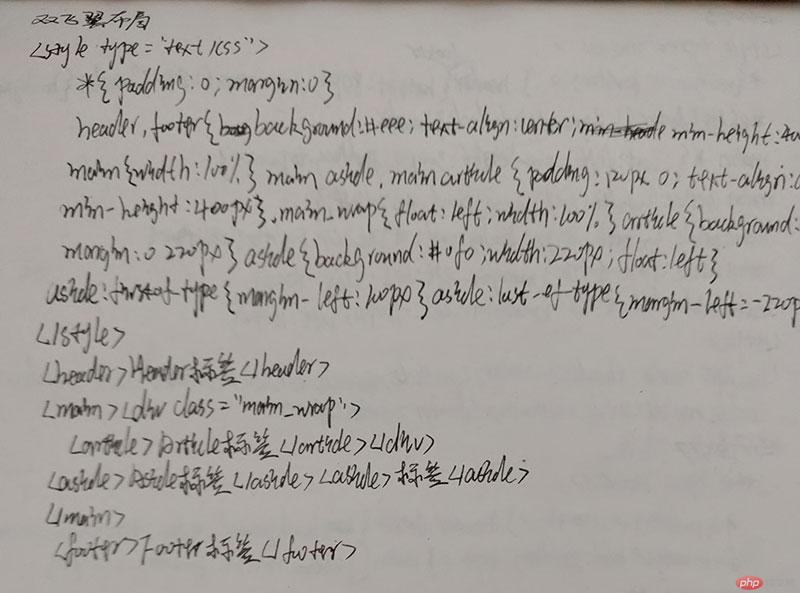 双飞翼布局
<style type="text/css">
*{padding:0; margin:0}
header,footer{background:#eee; text-align:center; min-height:
main{width:100%} main aside, main article {padding:120px 0; text-align:
min-height:400px}.main_wrap{float:left;width:100%} article{background:
margin:0 220px} aside{background:#0f0;width:220px;float:left}
aside:first-of-type{margin-left:100px} aside:last-of-type{margin-left:-220p
</style>
<header>Header标签</header>
<main><div class="main_wrap">
<article>Article标签</article></div>
<aside>Aside标签</aside><aside>标签</aside>
</main>
<footer>Footer标签</footer>
php